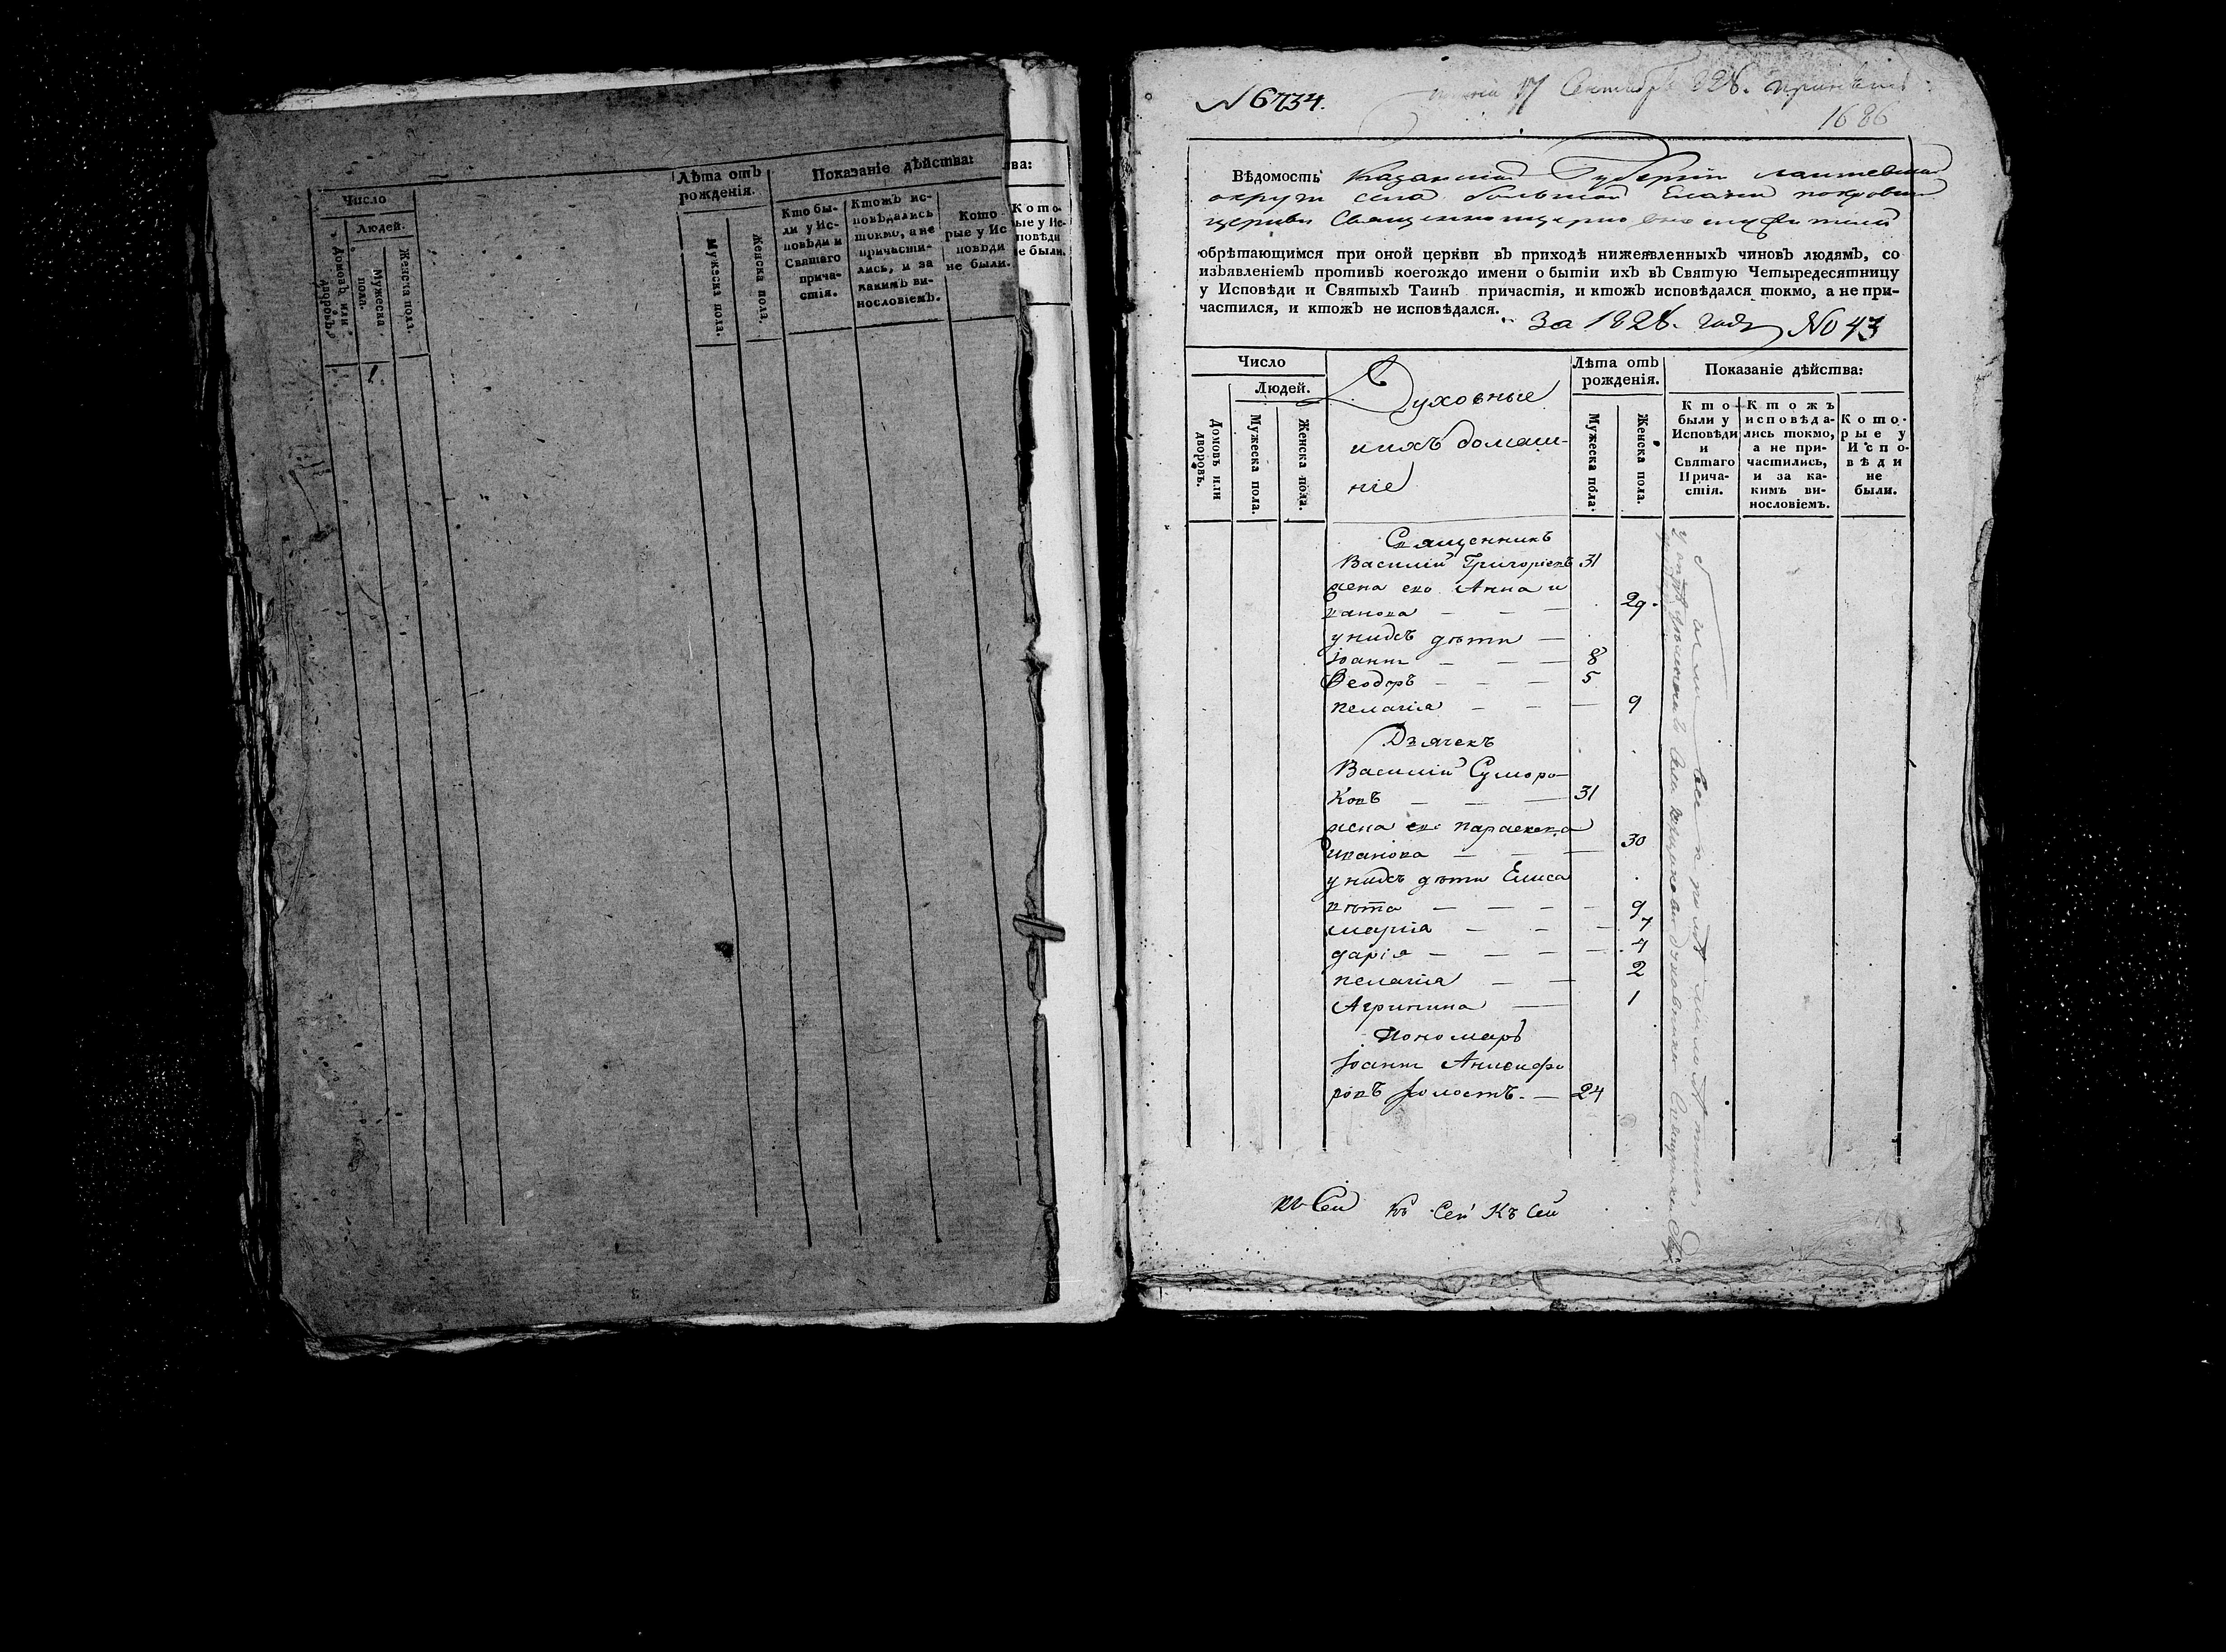 Число
Людей.
Домовъ или дворовъ.
Мужеска пола.
Женска пола.
Лѣта отъ рожденія.
Мужеска пола.
Женска пола.
Показаніе дѣйства:
Кто бы-
ли у Ис-
повѣди и
Святаго
прича-
стія.
Ктожъ ис-
повѣдались
токмо, а не
причасти-
лись, и за
какимъ ви-
нословіемъ.
Кото
рые у Ис
повѣди
не были.
ва:
Кото-
ые у Ис-
повѣди
е были.
№ 6734.
17 Сентября 1826.
1686
Вѣдомость Казанской Губерніи лаишевской
округи села большой Елани покровской
церкви Священноцерковнослужителей
обрѣтающимся при оной церкви въ приходѣ нижеявленныхъ чиновъ людямъ, со
изъявленіемъ противъ коегождо имени о бытіи ихъ въ Святую Четыредесятницу
у Исповѣди и Святыхъ Таинъ причастія, и ктожъ исповѣдался токмо, а не при-
частился, и ктожъ не исповѣдался.
За 1826. годъ № 43
Число
Людей.
Домовъ или дворовъ.
Мужеска пола.
Женска пола.
Духовные
ихъ домаш-
ніе
Лѣта отъ
рожденія.
Мужеска пола.
Женска пола.
Показаніе дѣйства:
Кто
были у
Исповѣди
и
Святаго
Прича-
стія.
Ктожъ
исповѣда-
лись токмо,
а не при-
частились,
и за ка-
кимъ ви-
нословіемъ.
Кото-
рые у
Испо-
вѣди
не
были.
Священникъ
Василій Григорьевъ 31
жена его Анна и
ванова — — — 29.
у нихъ дѣти —
Іоаннъ — — — 8
Ѳеодоръ — — — 5
пелагія — — — 9
Дьячекъ
Василій Суморо-
ковъ — — — 31
жена его параскева
иванова — — — 30
у нихъ дѣти Елиса
вѣта — — — — 9
марія — — — 7
дарія — — — — 4
пелагія — — 2
Агрипина — 1
Пономарь
Іоаннъ Анисифо
ровъ холостъ. — 24
къ Сей къ Сей Къ Сей